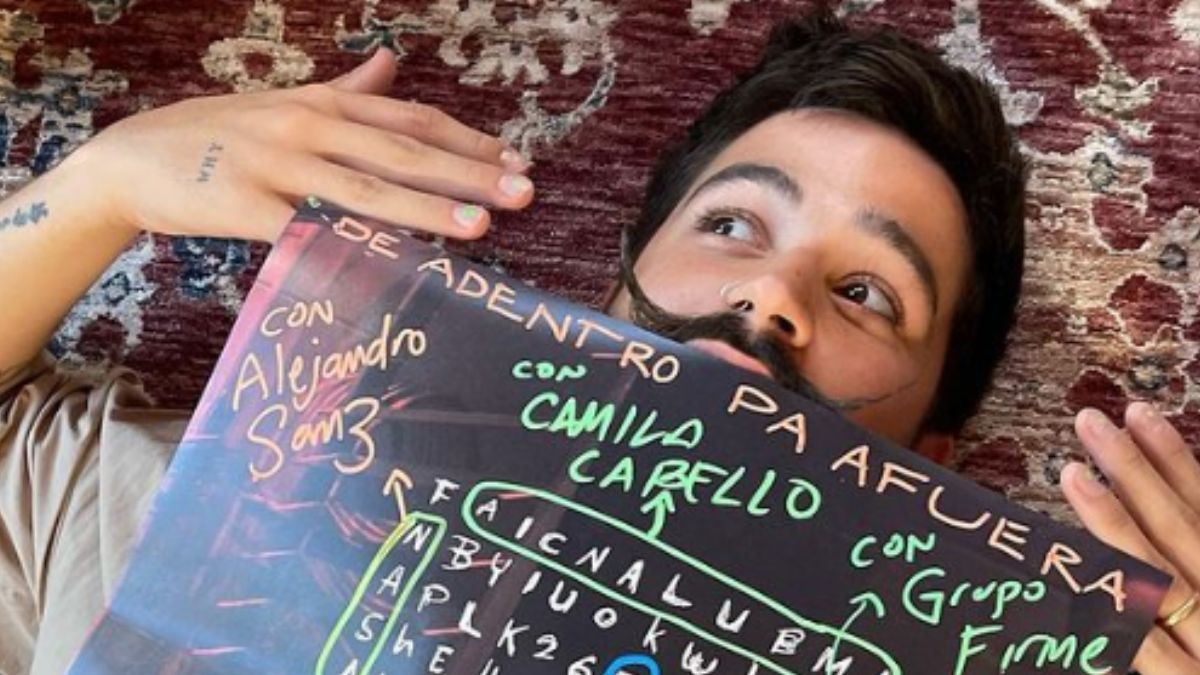 DE ADENTRO PA AFUERA
CON
Alejandro
Sanz
CON
CAMILA
CABELLO
CON
Grupo
Firme
F A I C N A L U B M
N B Y I U O K W
A P L K 2 6
S h E